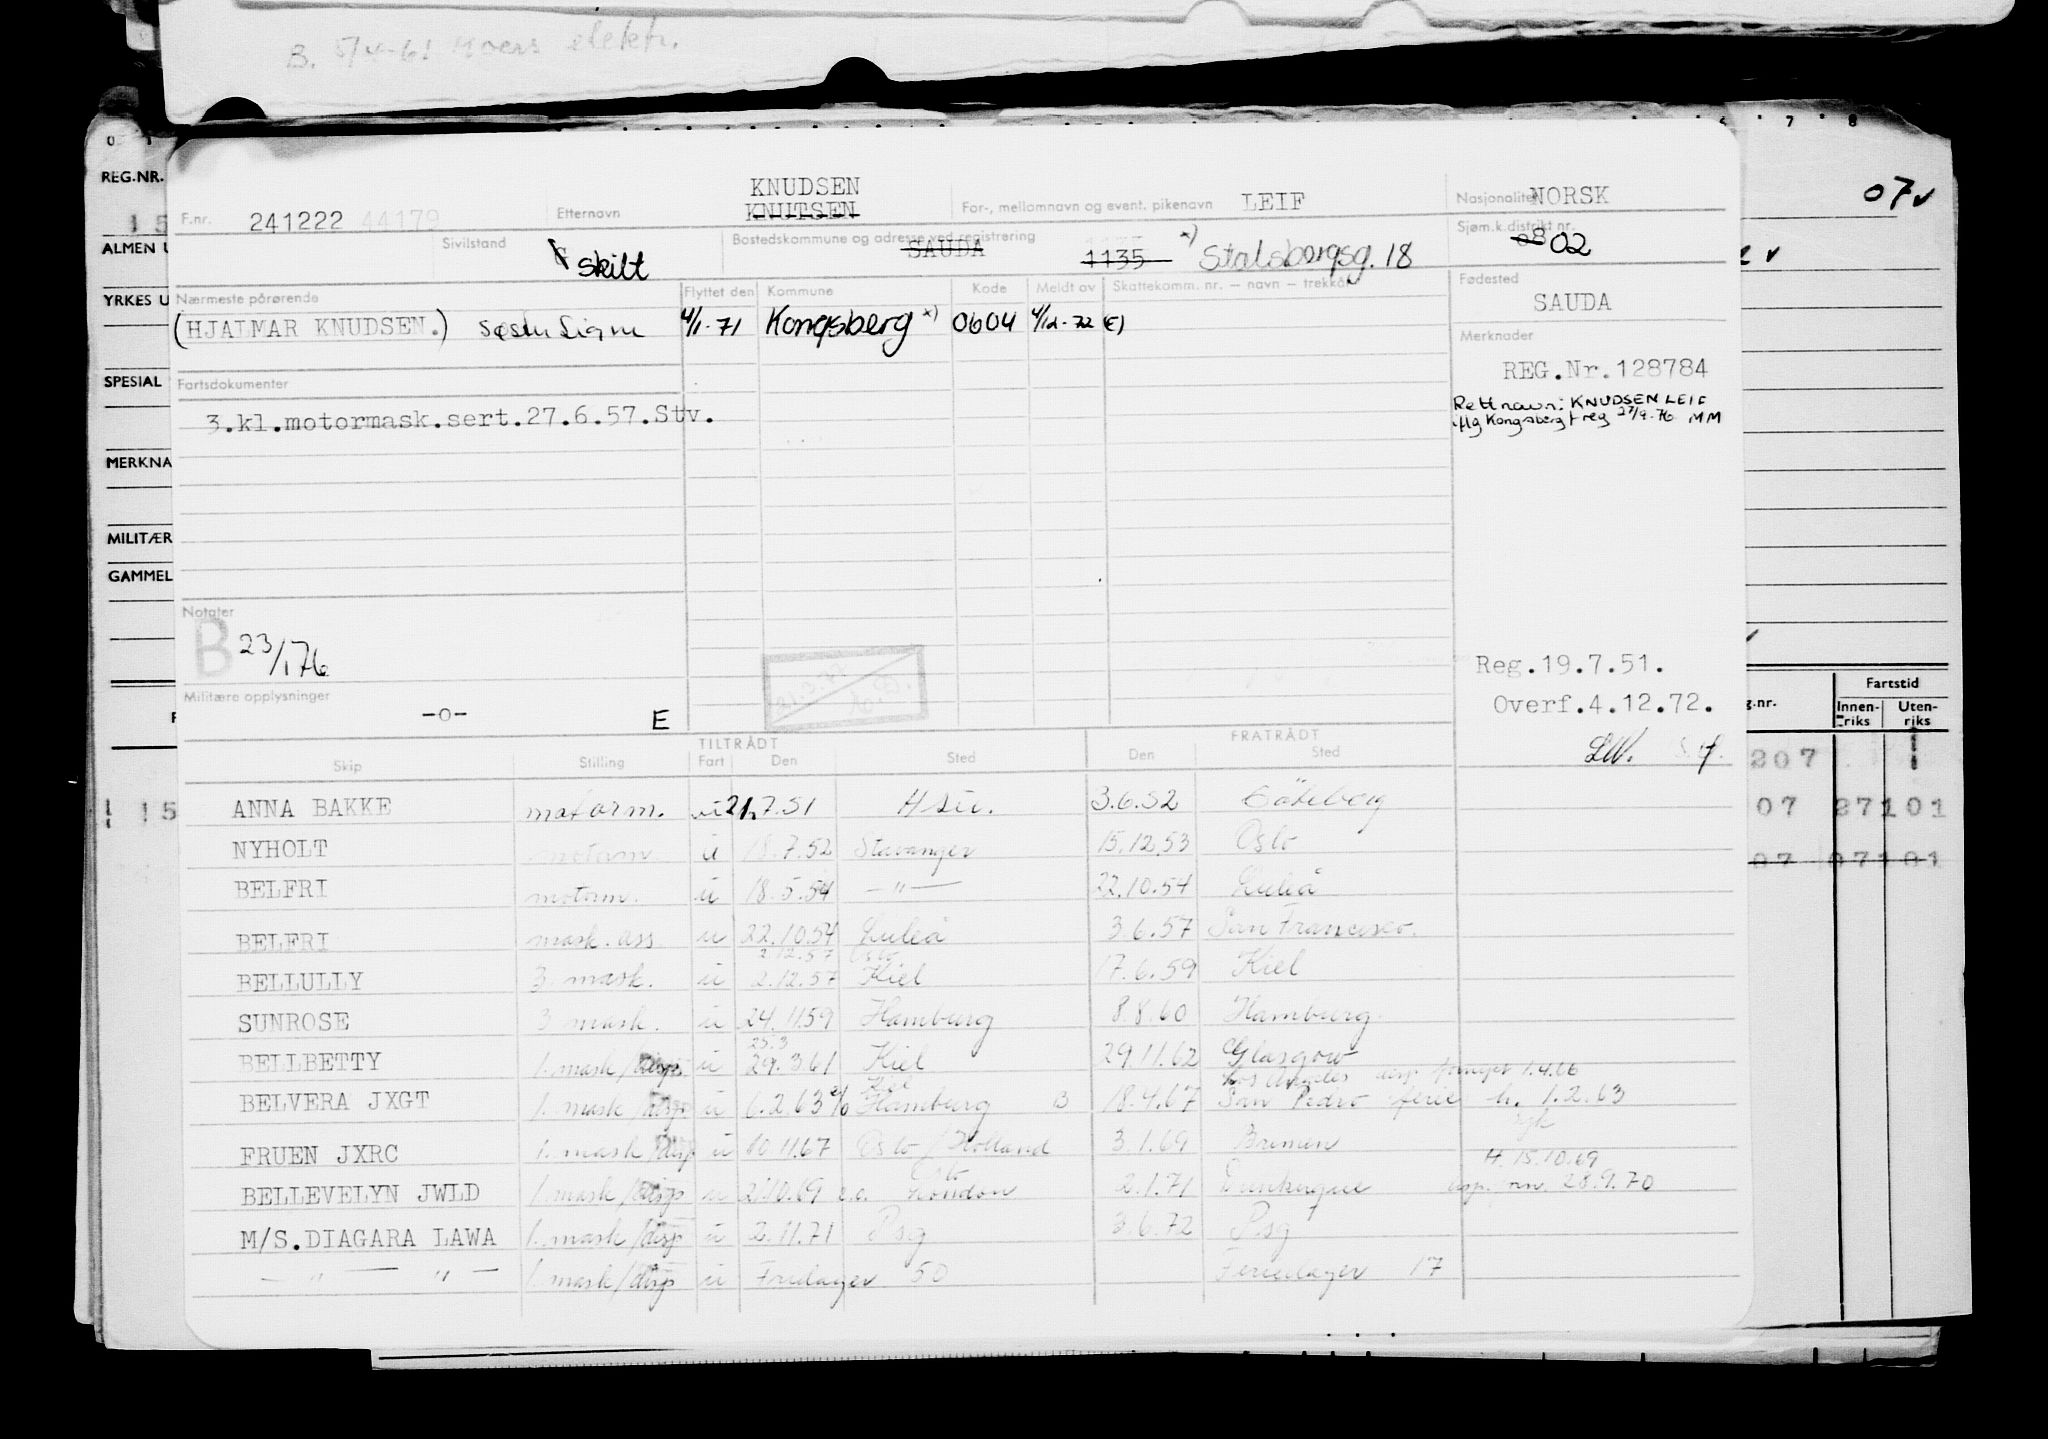 B. 5/v-61 elektr.
0 1 7 8
REG.NR.
15
ALMEN U
YRKES U
SPESIAL
MERKNA
MILITÆR
GAMMEL
07 v
KNUDSEN
F.nr. 241222 44179 Etternavn KNUTSEN For-, mellomnavn og event. pikenavn LEIF Nasjonalitet NORSK
Sivilstand skilt Bostedskommune og adresse ved registrering SAUDA 1135 x) Stalsbergsg. 18 Sjøm.k.distrikt nr. 08 02
Nærmeste pårørende Flyttet den Kommune Kode Meldt av Skattekomm. nr. – navn – trekkår Fødested
SAUDA
(HJALMAR KNUDSEN.) søster Signe 4/1-71 Kongsberg x) 0604 4/12-72 (E)
Merknader
REG.Nr.128784
Rett navn: KNUDSEN LEIF
iflg Kongsberg f.reg 27/9-76 MM
Fartsdokumenter
3.kl.motormask.sert.27.6.57.Stv.
Notater
B 23/1 76
Reg.19.7.51.
Overf.4.12.72.
Militære opplysninger
-o- E
TILTRÅDT FRATRÅDT
Skip Stilling Fart Den Sted Den Sted
Fartstid
g.nr. Innen-riks Uten-riks
207 1
15 07 27101
07 07101
ANNA BAKKE motorm. u 21.7.51 3.6.52 Göteborg
NYHOLT motorm. u 18.7.52 Stavanger 15.12.53 Oslo
BELFRI motorm. u 18.5.54 — " — 22.10.54 Luleå
BELFRI mask.ass u 22.10.54 Luleå 3.6.57 San Francisco.
2.12.57 Oslo
BELLULLY 3 mask. u 2.12.57 Kiel 17.6.59 Kiel
SUNROSE 3 mask. u 24.11.59 Hamburg 8.8.60 Hamburg.
25.3
BELLBETTY 1. mask/disp u 29.3.61 Kiel 29.11.62 Glasgow
Kiel Los Angeles 1.4.66
BELVERA JXGT 1. mask/disp u 6.2.63 Hamburg B 18.4.67 San Pedro ferie h. 1.2.63
FRUEN JXRC 1. mask/disp u 10.11.67 Oslo/Holland 3.1.69 Bremen
Oslo H. 15.10.69
BELLEVELYN JWLD 1. mask/disp u 21.10.69 London 2.1.71 Dunkerque 28.9.70
M/S.DIAGARA LAWA 1. mask/disp u 2.11.71 Psg 3.6.72 Psg
— " — " — 1. mask/disp u Fridager 50 Feriedager 17